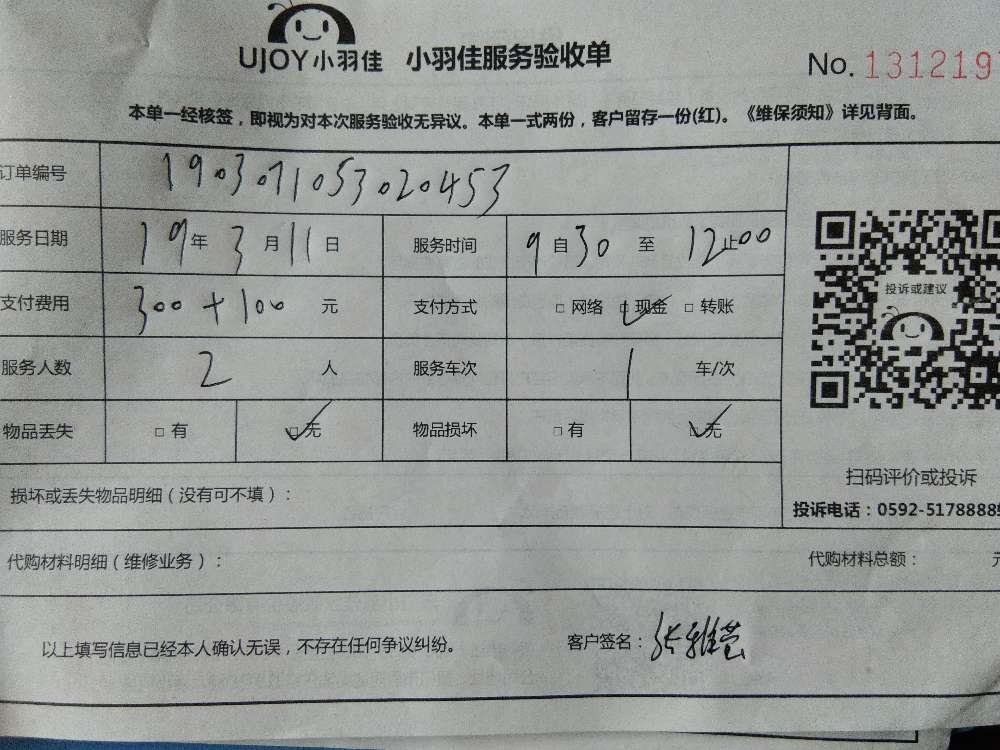 UJOY小羽佳 小羽佳服务验收单
No. 131219
本单一经核签，即视为对本次服务验收无异议。本单一式两份，客户留存一份(红)。《维保须知》详见背面。
订单编号 190311053020453
服务日期 19年3月11日 服务时间 9自30至12止00
支付费用 300+100 元 支付方式 □网络 □现金 □转账
投诉或建议
服务人数 2 人 服务车次 1 车/次
物品丢失 □有 □无 物品损坏 □有 □无
扫码评价或投诉
损坏或丢失物品明细（没有可不填）：
投诉电话：0592-5178888
代购材料明细（维修业务）： 代购材料总额： 元
以上填写信息已经本人确认无误，不存在任何争议纠纷。 客户签名：张雅莹